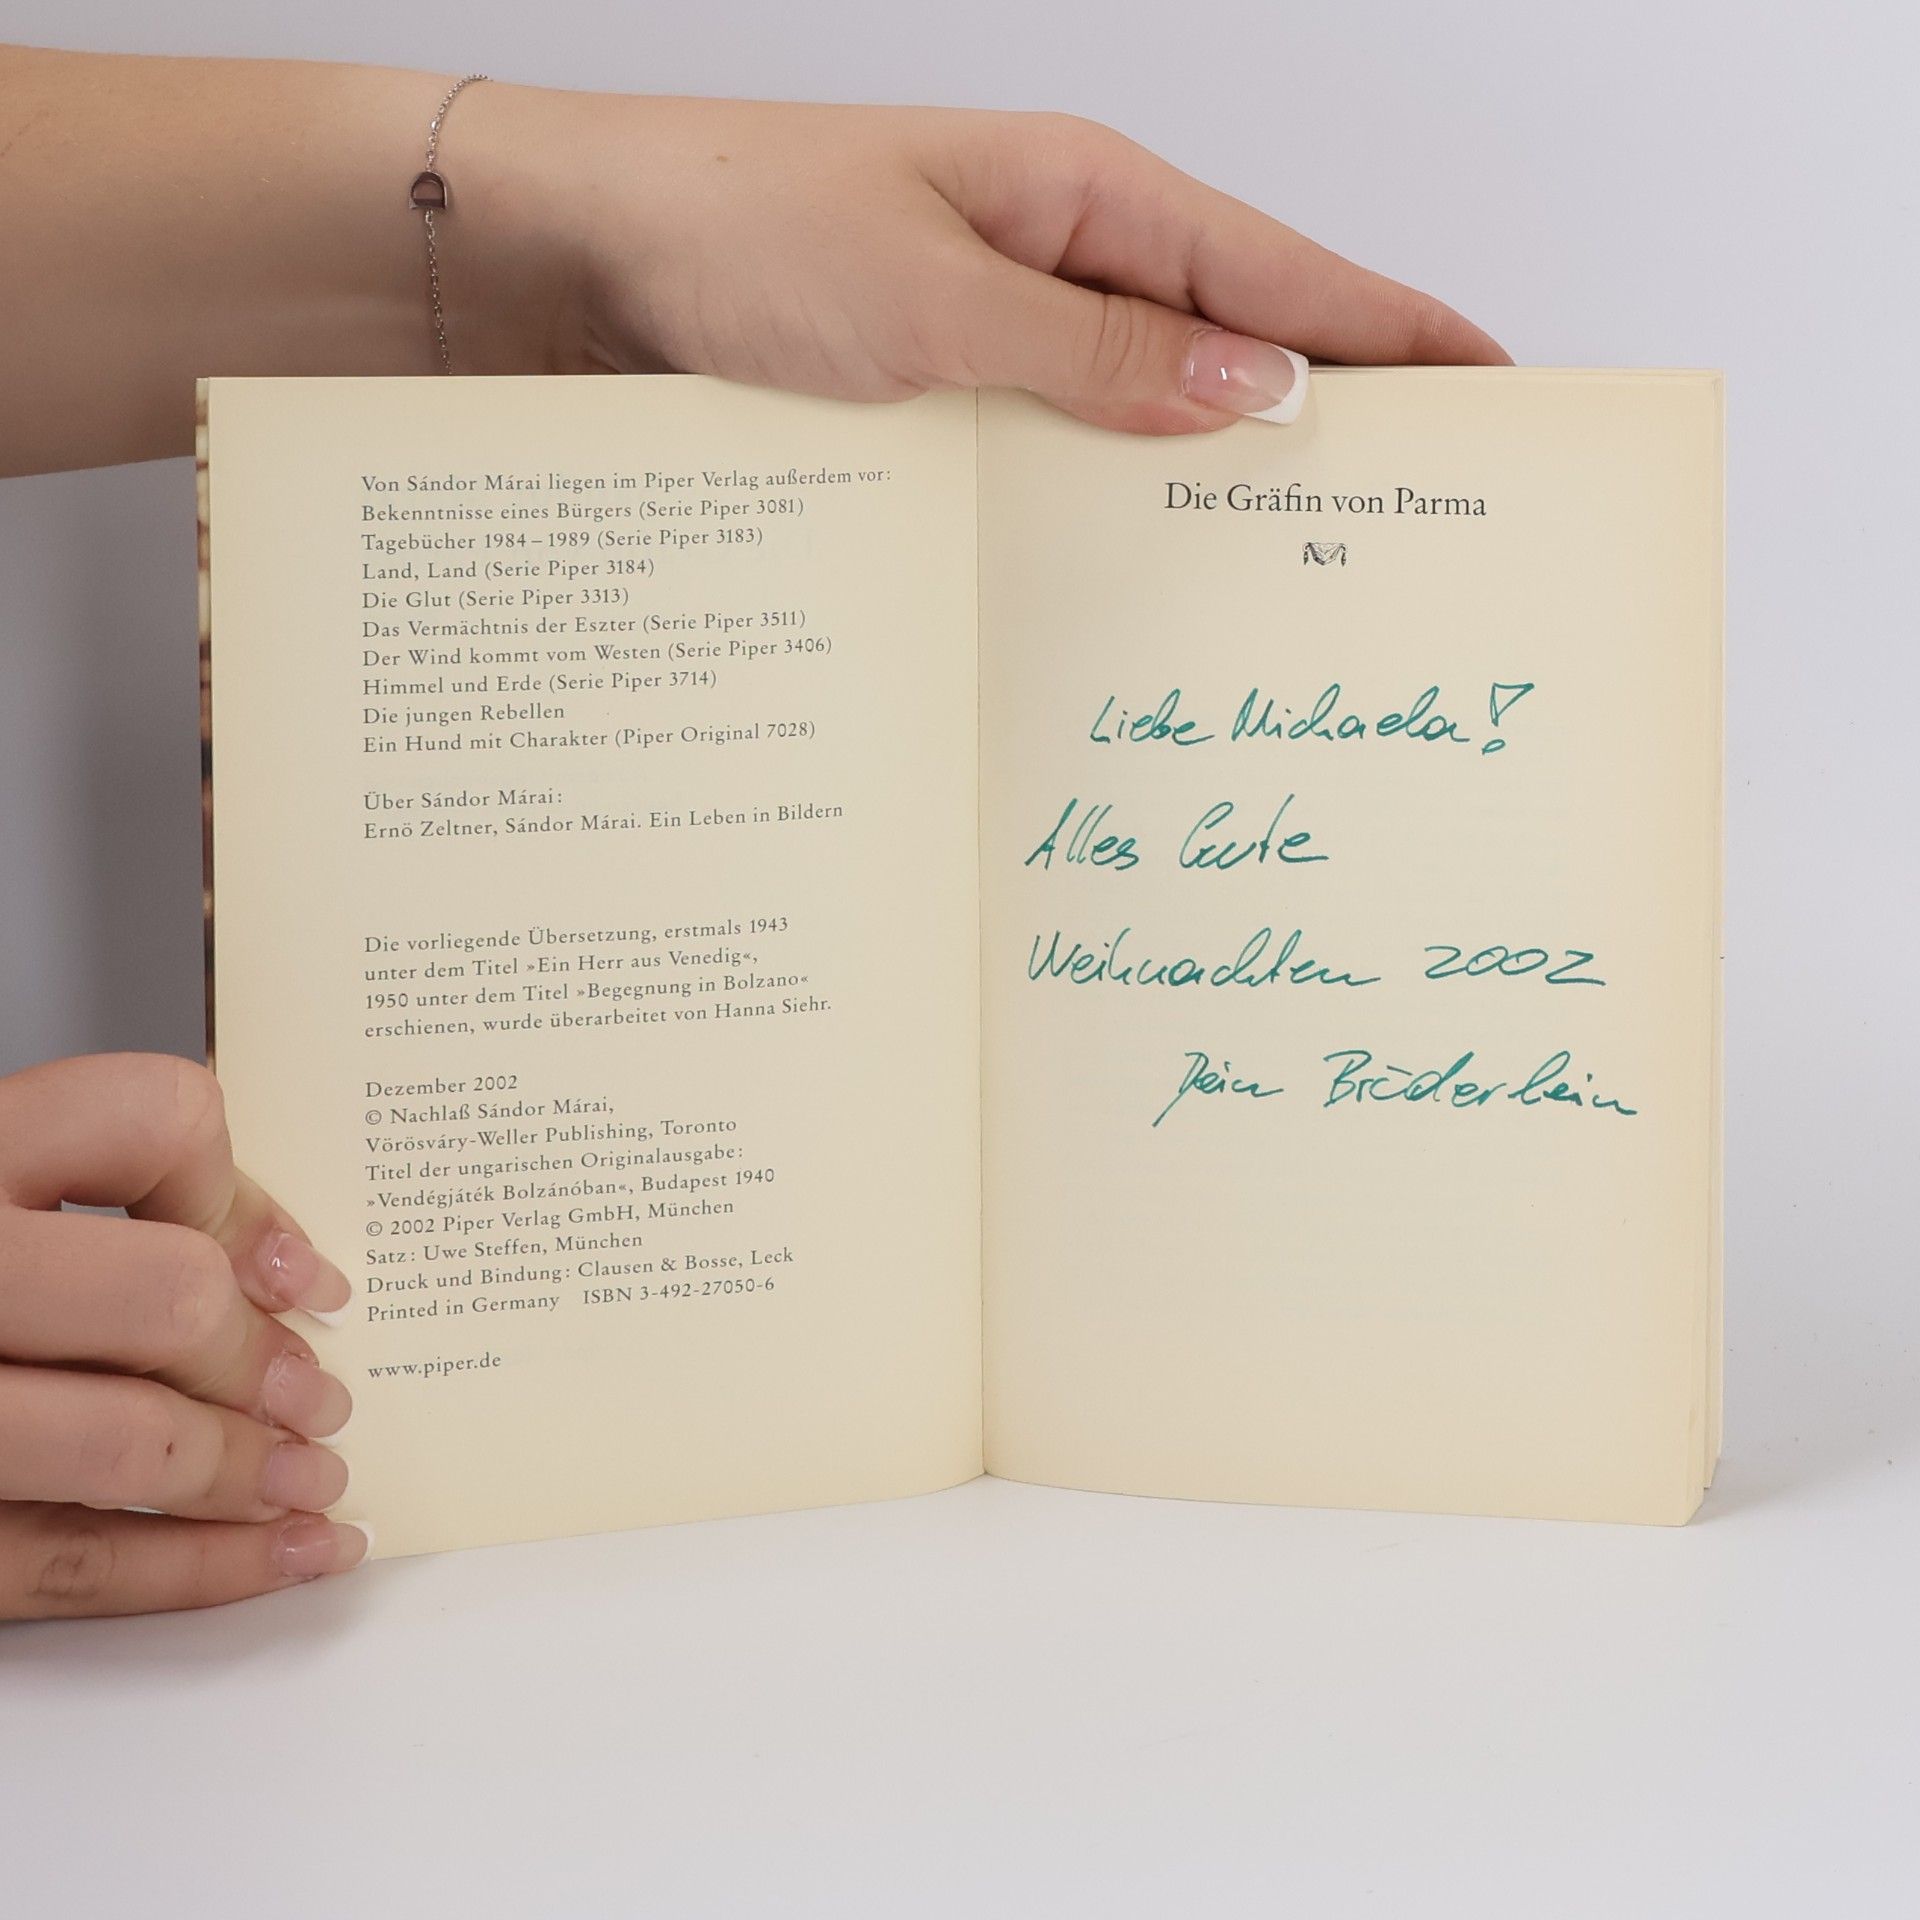 Von Sándor Márai liegen im Piper Verlag außerdem vor:
Bekenntnisse eines Bürgers (Serie Piper 3081)
Tagebücher 1984–1989 (Serie Piper 3183)
Land, Land (Serie Piper 3184)
Die Glut (Serie Piper 3313)
Das Vermächtnis der Eszter (Serie Piper 3511)
Der Wind kommt vom Westen (Serie Piper 3406)
Himmel und Erde (Serie Piper 3714)
Die jungen Rebellen
Ein Hund mit Charakter (Piper Original 7028)
Über Sándor Márai:
Ernö Zeltner, Sándor Márai. Ein Leben in Bildern
Die vorliegende Übersetzung, erstmals 1943
unter dem Titel »Ein Herr aus Venedig«,
1950 unter dem Titel »Begegnung in Bolzano«
erschienen, wurde überarbeitet von Hanna Siehr.
Dezember 2002
© Nachlaß Sándor Márai,
Vörösváry-Weller Publishing, Toronto
Titel der ungarischen Originalausgabe:
»Vendégjáték Bolzánóban«, Budapest 1940
© 2002 Piper Verlag GmbH, München
Satz: Uwe Steffen, München
Druck und Bindung: Clausen & Bosse, Leck
Printed in Germany ISBN 3-492-27050-6
www.piper.de
Die Gräfin von Parma
Liebe Michaela!
Alles Gute
Weihnachten 2002
Dein Brüderlein